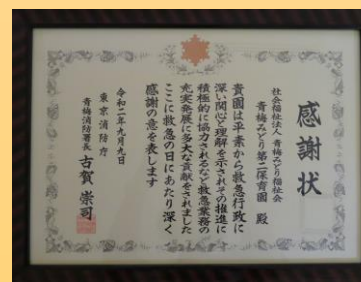 感謝状
社会福祉法人 青梅みどり福祉会
青梅みどり第二保育園 殿
貴園は平素から救急行政に
深い関心と理解を示されその推進に
積極的に協力されるなど救急業務の
充実発展に多大な貢献をされました
ここに救急の日にあたり深く
感謝の意を表します
令和二年九月九日
東京消防庁
青梅消防署長 古賀崇司